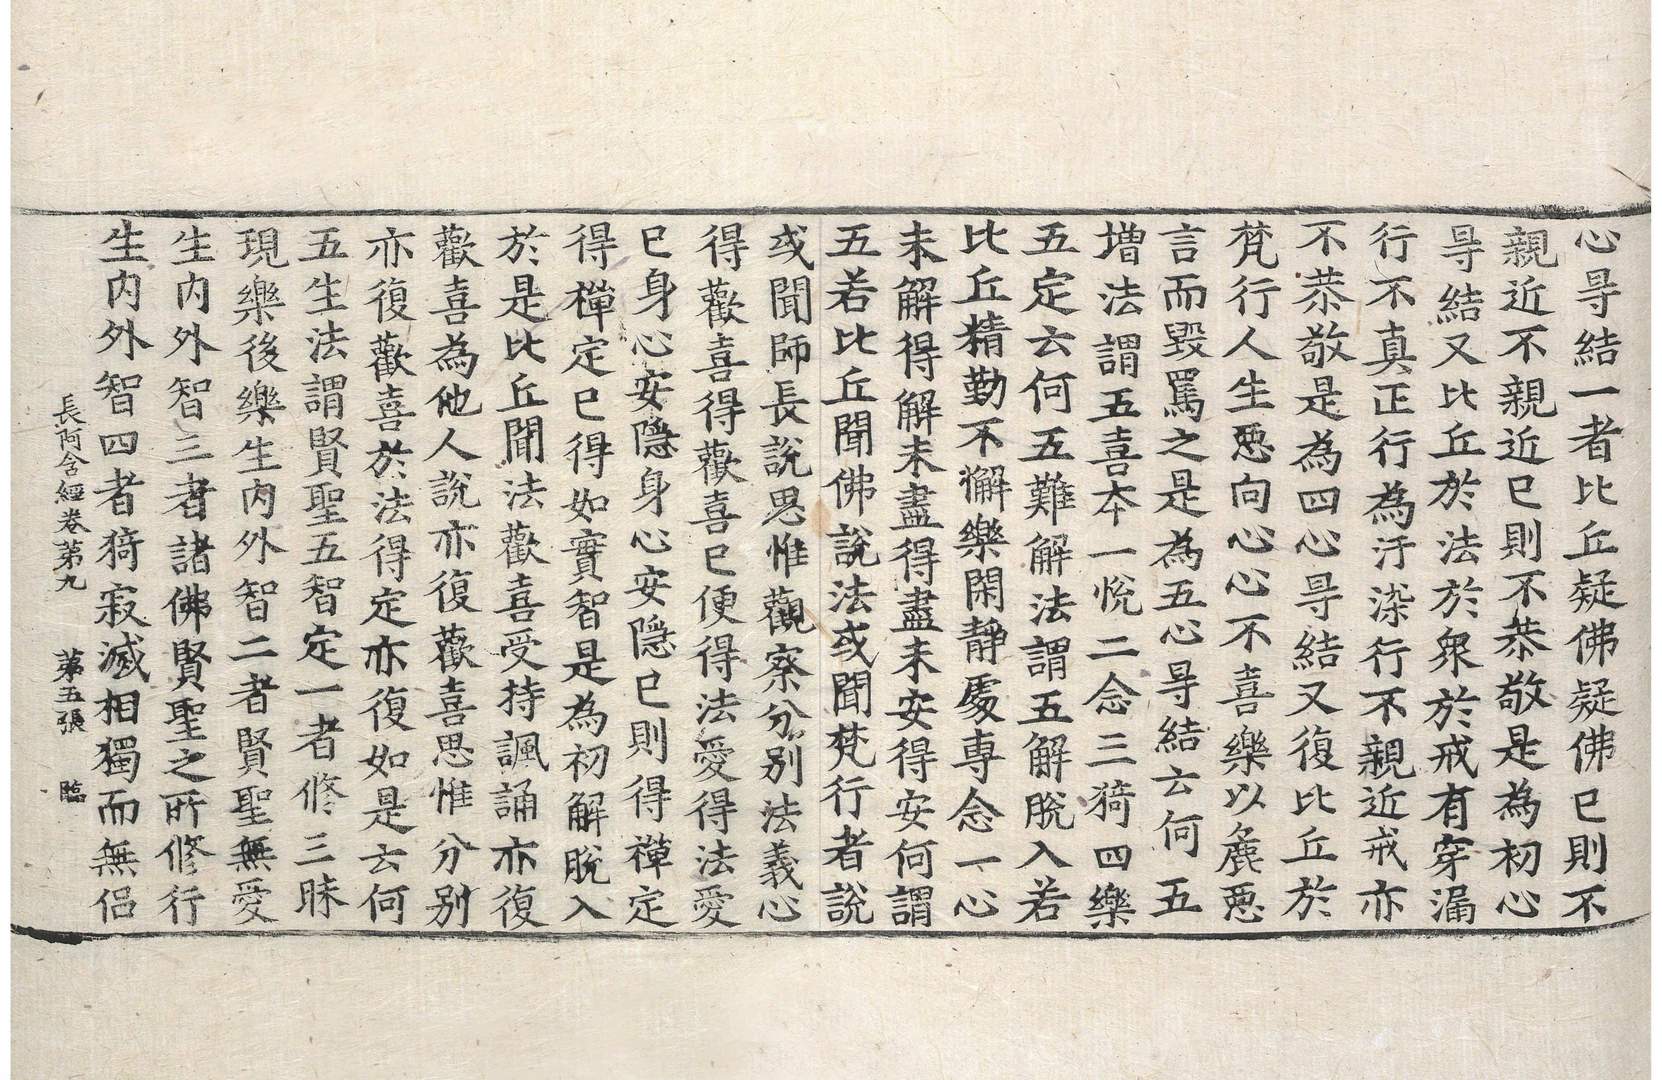 心㝵結一者比丘疑佛疑佛已則不
親近不親近已則不恭敬是為初心
㝵結又比丘於法於衆於戒有穿漏
行不真正行為汙染行不親近戒亦
不恭敬是為四心㝵結又復比丘於
梵行人生惡向心心不喜樂以麁惡
言而毀罵之是為五心㝵結云何五
增法謂五喜本一悅二念三猗四樂
五定云何五難解法謂五解脫入若
比丘精勤不懈樂閑靜處專念一心
未解得解未盡得盡未安得安何謂
五若比丘聞佛說法或聞梵行者說
或聞師長說思惟觀察分別法義心
得歡喜得歡喜已便得法愛得法愛
已身心安隱身心安隱已則得禪定
得禪定已得如實智是為初解脫入
於是比丘聞法歡喜受持諷誦亦復
歡喜為他人說亦復歡喜思惟分別
亦復歡喜於法得定亦復如是云何
五生法謂賢聖五智定一者修三昧
現樂後樂生內外智二者賢聖無愛
生內外智三者諸佛賢聖之所修行
生內外智四者猗寂滅相獨而無侶
長阿含經卷第九 第五張 臨